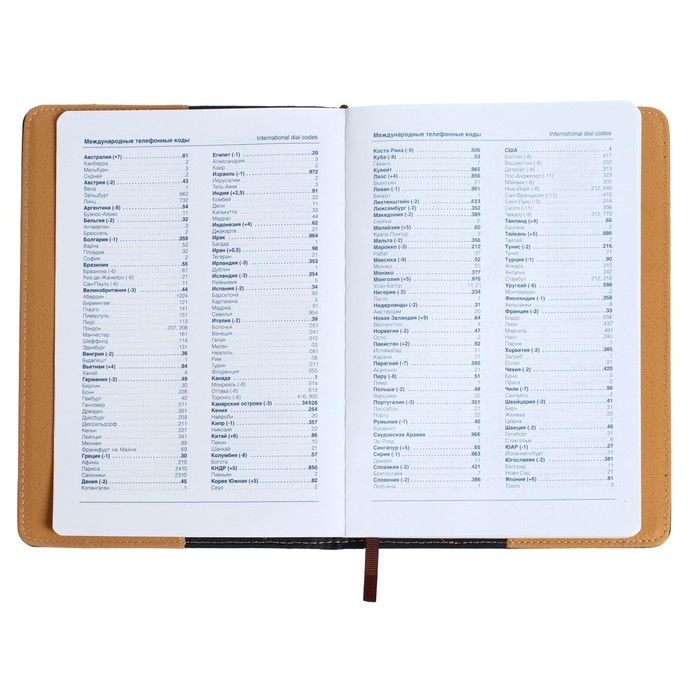 Международные телефонные коды
International dial codes
Австралия (+7) .61
Канберра 2
Мельбурн 3
Сидней 2
Австрия (-2) .43
Вена 1
Зальцбург 662
Линц 732
Аргентина (-6) .54
Буэнос-Айрес 11
Бельгия (-2) .32
Антверпен 3
Брюссель 2
Болгария (-1) .359
Варна 52
Пловдив 32
София 2
Бразилия .55
Бразилиа (-6) 61
Рио-де-Жанейро (-6) 21
Сан-Паулу (-6) 11
Великобритания (-3) .44
Абердин 1224
Бирмингем 121
Глазго 141
Ливерпуль 151
Лидс 113
Лондон 207, 208
Манчестер 161
Шеффилд 114
Эдинбург 131
Венгрия (-2) .36
Будапешт 1
Вьетнам (+4) .84
Ханой 4
Германия (-2) .49
Берлин 30
Бонн 228
Гамбург 40
Ганновер 511
Дрезден 351
Дуйсбург 203
Дюссельдорф 211
Кельн 221
Лейпциг 341
Мюнхен 89
Франкфурт на Майне 69
Греция (-1) .30
Афины 210
Лариса 2410
Салоники 2310
Дания (-2) .45
Копенгаген 1
Египет (-1) .20
Александрия 3
Каир 2
Израиль (-1) .972
Иерусалим 2
Тель-Авив 3
Индия (+2,5) .91
Бомбей 22
Дели 11
Калькутта 33
Мадрас 44
Индонезия (+4) .62
Джакарта 21
Ирак .964
Багдад 1
Иран (+0,5) .98
Тегеран 21
Ирландия (-3) .353
Дублин 1
Исландия (-3) .354
Рейкьявик 5
Испания (-2) .34
Барселона 93
Картахена 5
Мадрид 91
Севилья 954
Италия (-2) .39
Болонья 051
Венеция 041
Генуя 010
Милан 02
Неаполь 081
Рим 06
Турин 011
Флоренция 055
Канада .1
Монреаль (-8) 514
Оттава (-8) 613
Торонто (-8) 416, 905
Канарские острова (-3) 34928
Кения .254
Найроби 20
Кипр (-1) .357
Никозия 22
Китай (+6) .86
Пекин 10
Шанхай 21
Колумбия (-8) .57
Богота 1
КНДР (+5) .850
Пхеньян 2
Корея Южная (+5) .82
Сеул 2
Международные телефонные коды
International dial codes
Коста-Рика (-9) .506
Куба (-8) .53
Гавана 7
Кувейт .965
Лаос (+4) .856
Вьентьян
Ливан (-1) .961
Бейрут 1
Лихтенштейн (-2) .423
Люксембург (-2) .352
Македония (-2) .389
Скопье 2
Малайзия (+5) .60
Куала-Лумпур 3
Мальта (-2) .356
Марокко (-3) .212
Рабат 37
Мексика (-9) .52
Мехико 55
Монако .377
Монголия (+5) .976
Улан-Батор 11, 21
Нигерия (-2) .234
Лагос
Нидерланды (-2) .31
Амстердам 20
Новая Зеландия (+9) .64
Веллингтон 4
Норвегия (-2) .47
Осло 2
Пакистан (+2) .92
Исламабад 51
Карачи 21
Парагвай (-7) .595
Асунсьон 21
Перу (-8) .51
Лима 1
Польша (-2) .48
Варшава 22
Португалия (-3) .351
Лиссабон 21
Порту 22
Румыния (-1) .40
Бухарест 1
Саудовская Аравия .966
Эр-Рияд 1
Сингапур (+5) .65
Сирия (-1) .963
Дамаск 11
Словакия (-2) .421
Братислава 2
Словения (-2) .386
Любляна 1
США .1
Бостон (-8) 617
Вашингтон (-8) 202
Детройт (-8) 313
Лос-Анджелес (-11) 323
Майами (-8) 305
Нью-Йорк (-8) 212, 646
Сан-Франциско (-11) 415
Сент-Луис (-9) 314
Сиэтл (-11) 206
Чикаго (-9) 312, 773
Таиланд (+4) .66
Бангкок 2
Тайвань (+5) .886
Тайпей 2
Тунис (-2) .216
Тунис 71
Турция (-1) .90
Анкара 312
Анталья 242
Стамбул 212, 216
Уругвай (-6) .598
Монтевидео 2
Финляндия (-1) .358
Хельсинки 9
Франция (-2) .33
Бордо 556
Лион 437
Марсель 491
Нант 240
Париж 1
Хорватия (-2) .385
Загреб 1
Сплит 21
Чехия (-2) .420
Брно 5
Прага 2
Чили (-7) .56
Сантьяго 2
Швейцария (-2) .41
Берн 31
Женева 22
Цюрих 1
Швеция (-2) .46
Гетеборг 31
Стокгольм 8
ЮАР (-1) .27
Йоханнесбург 11
Югославия (-2) .381
Белград 11
Нови-Сад 21
Япония (+6) .81
Токио 3